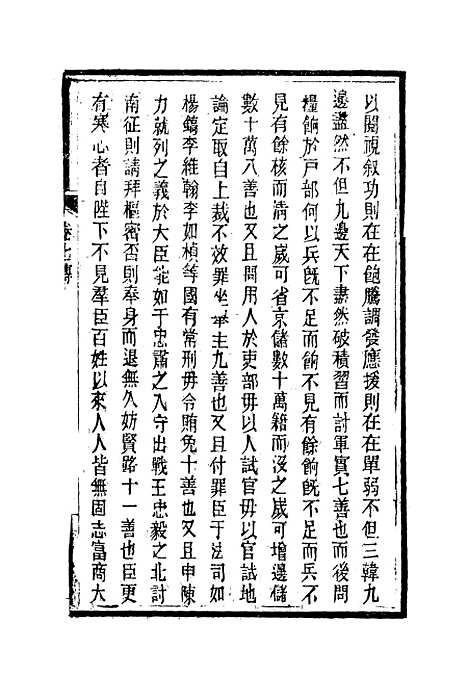 以閱視叙功則在在飽騰調發應援則在在單弱不但三韓九
邊盡然不但九邊天下盡然破積習而討軍實七善也而後問
糧餉於戸部何以兵旣不足而餉不見有餘餉旣不足而兵不
見有餘核而清之歲可省京儲數十萬籍而沒之歲可增邊儲
數十萬八善也又且問用人於吏部毋以人試官毋以官試地
論定取自上裁不效罪坐舉主九善也又且付罪臣于法司如
楊鎬李維翰李如楨等國有常刑毋令賄免十善也又且申陳
力就列之義於大臣能如于忠肅之入守出戰王忠毅之北討
南征則請拜樞密否則奉身而退無久妨賢路十一善也臣更
有寒心者自陛下不見羣臣百姓以來人人皆無固志富商大
卷七傳